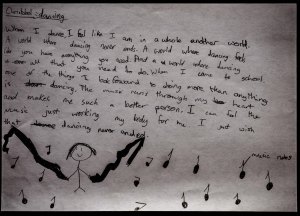 Scribbel: dancing.
When I dance, I feel like I am in a whole another world.
A world where dancing never ends. A world where dancing feels
like you have everything you need. And a world where dancing
is all that you need to do. When I came to school
one of the things I look forward to doing more than anything
is dancing. The music runs through my heart
and makes me such a better person. I can feel the
music just working my body for me. I just wish
that dancing never ended.
music notes